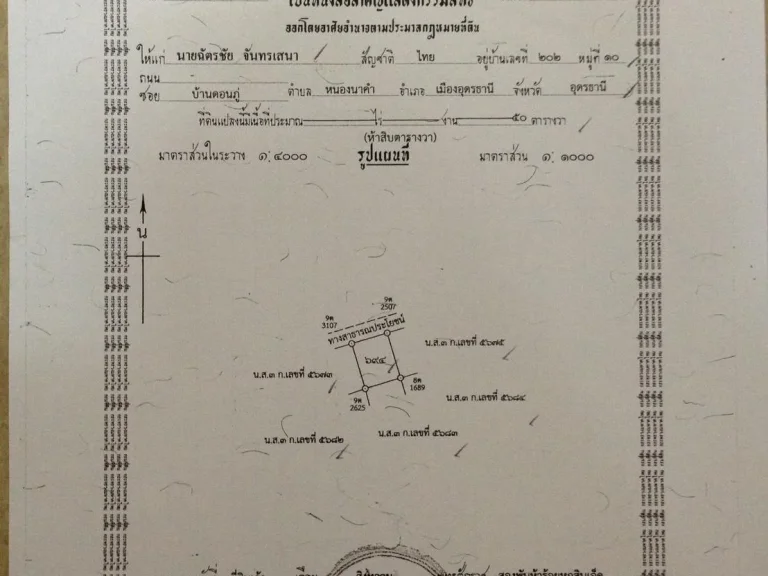 เป็นหนังสือสำคัญแสดงกรรมสิทธิ์
ออกโดยอาศัยอำนาจตามประมวลกฎหมายที่ดิน
ให้แก่ นายฉัตรชัย จันทรเสนา สัญชาติ ไทย อยู่บ้านเลขที่ ๒๐๒ หมู่ที่ ๑๐
ถนน
ซอย บ้านดอนภู่ ตำบล หนองนาคำ อำเภอ เมืองอุดรธานี จังหวัด อุดรธานี
ที่ดินแปลงนี้มีเนื้อที่ประมาณ ไร่ งาน ๕๐ ตารางวา
(ห้าสิบตารางวา)
มาตราส่วนในระวาง ๑:๔๐๐๐ รูปแผนที่ มาตราส่วน ๑:๑๐๐๐
น
9ต 3107
9ต 2507
ทางสาธารณประโยชน์
น.ส.๓ ก.เลขที่ ๕๖๗๕
๖๙๔
น.ส.๓ ก.เลขที่ ๕๖๗๓
8ต 1689
9ต 2625
น.ส.๓ ก.เลขที่ ๕๖๘๔
น.ส.๓ ก.เลขที่ ๕๖๘๓
น.ส.๓ ก.เลขที่ ๕๖๘๒
สองพันห้าร้อยหกสิบเอ็ด